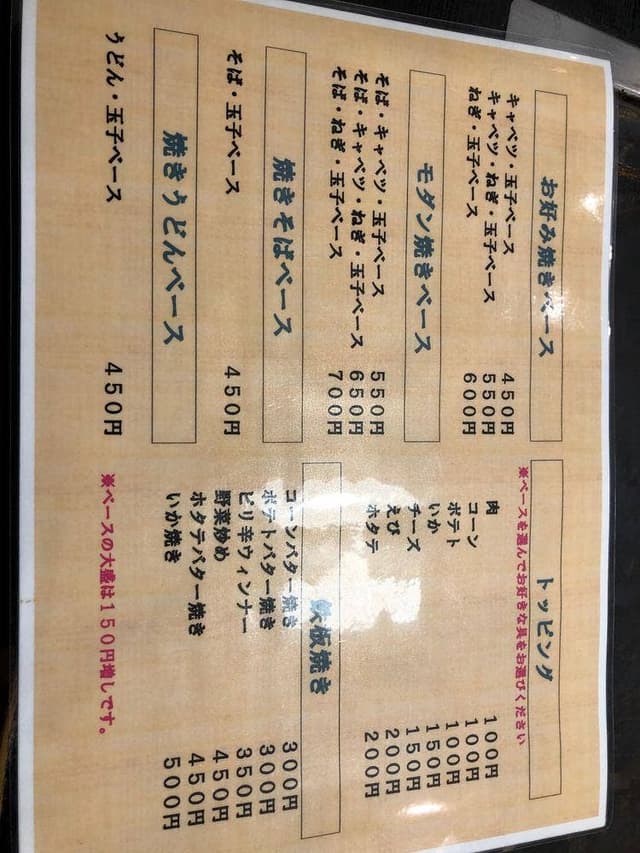 お好み焼きベース
キャベツ・玉子ベース 450円
キャベツ・ねぎ・玉子ベース 550円
ねぎ・玉子ベース 600円
モダン焼きベース
そば・キャベツ・玉子ベース 550円
そば・キャベツ・ねぎ・玉子ベース 650円
そば・ねぎ・玉子ベース 700円
焼きそばベース
そば・玉子ベース 450円
焼きうどんベース
うどん・玉子ベース 450円
トッピング
※ベースを選んでお好きな具をお選びください
肉 100円
コーン 100円
ポテト 100円
いか 150円
チーズ 150円
えび 200円
ホタテ 200円
鉄板焼き
コーンバター焼き 300円
ポテトバター焼き 300円
ピリ辛ウィンナー 350円
野菜炒め 450円
ホタテバター焼き 450円
いか焼き 500円
※ベースの大盛は150円増しです。